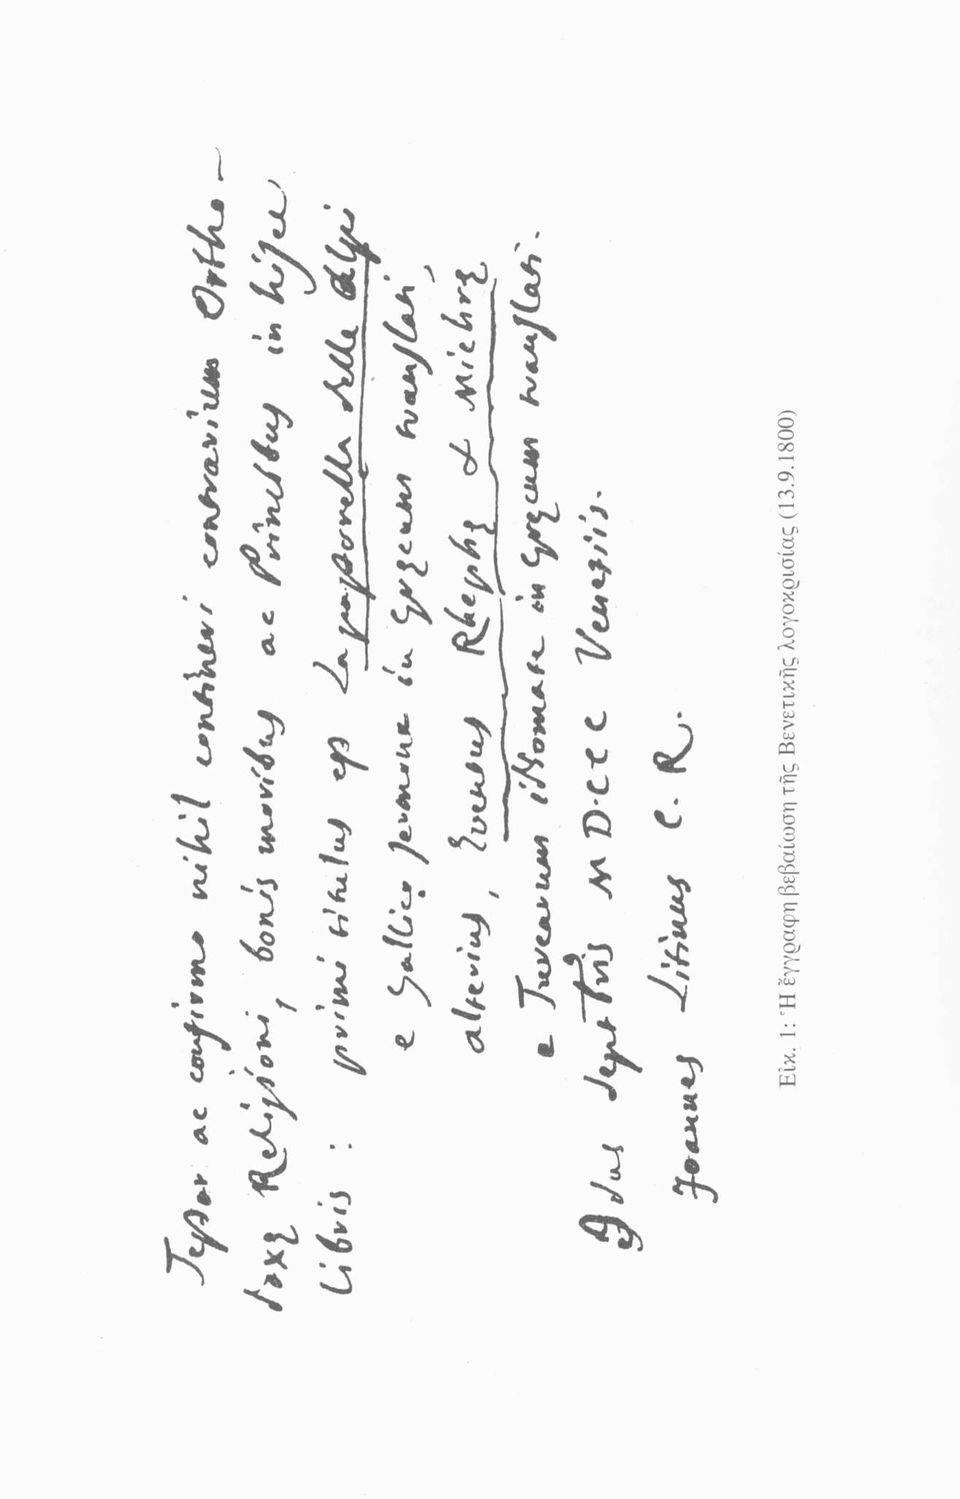 Testor ac confirmo nihil contineri contrarium Ortho-
doxę Religioni, bonis moribus ac Principibus in hisce
libris: primi titulus est La pastorella delle Alpi
e Gallico sermone in Gręcum translati,
alterius, Eventus Rhephę & Michrę
e Turcarum idiomate in Gręcum translati.
Idus Septbris MDCCC Venetiis.
Joannes Litinus C. R.
Εἰκ. 1: Ἡ ἔγγραφη βεβαίωση τῆς Βενετικῆς λογοκρισίας (13.9.1800)